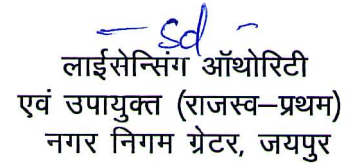 -sd-
लाईसेन्सिंग ऑथोरिटी
एवं उपायुक्त (राजस्व–प्रथम)
नगर निगम ग्रेटर, जयपुर